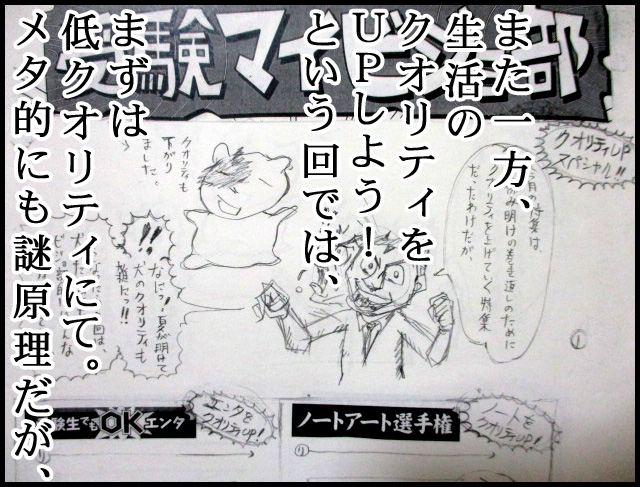 また一方、
生活の
クオリティを
UPしよう!
という回では、
まずは
低クオリティにて。
メタ的にも謎原理だが、
受験マイビジ
部
クオリティUP
スペシャル!!
明けの巻き返しのために
クオリティを上げていく特集
クオリティも
下がり
ました。
!!
なにっ!夏が明けて
犬のクオリティも
雑にっ!!
①
験生でもOKエンタ
エンタを
クオリティUP!
ノートアート選手権
ノートを
クオリティUP!